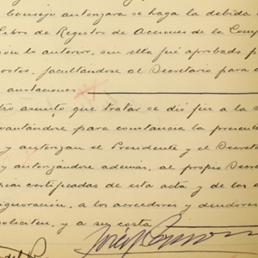 Consejo autorizara se haga la debida
Libro de Registro de Acciones de la Comp
ión lo anterior, sin ella fué aprobado p
otos, facultándose al Secretario para
anotaciones
tro asunto que tratar se dió fin a la s
vantándose para constancia la presente
y autorizan el Presidente y el Secret
y autorizándose además, al propio Secre
certificadas de esta acta y de las
a los acreedores y deudores
soliciten, y a su costa